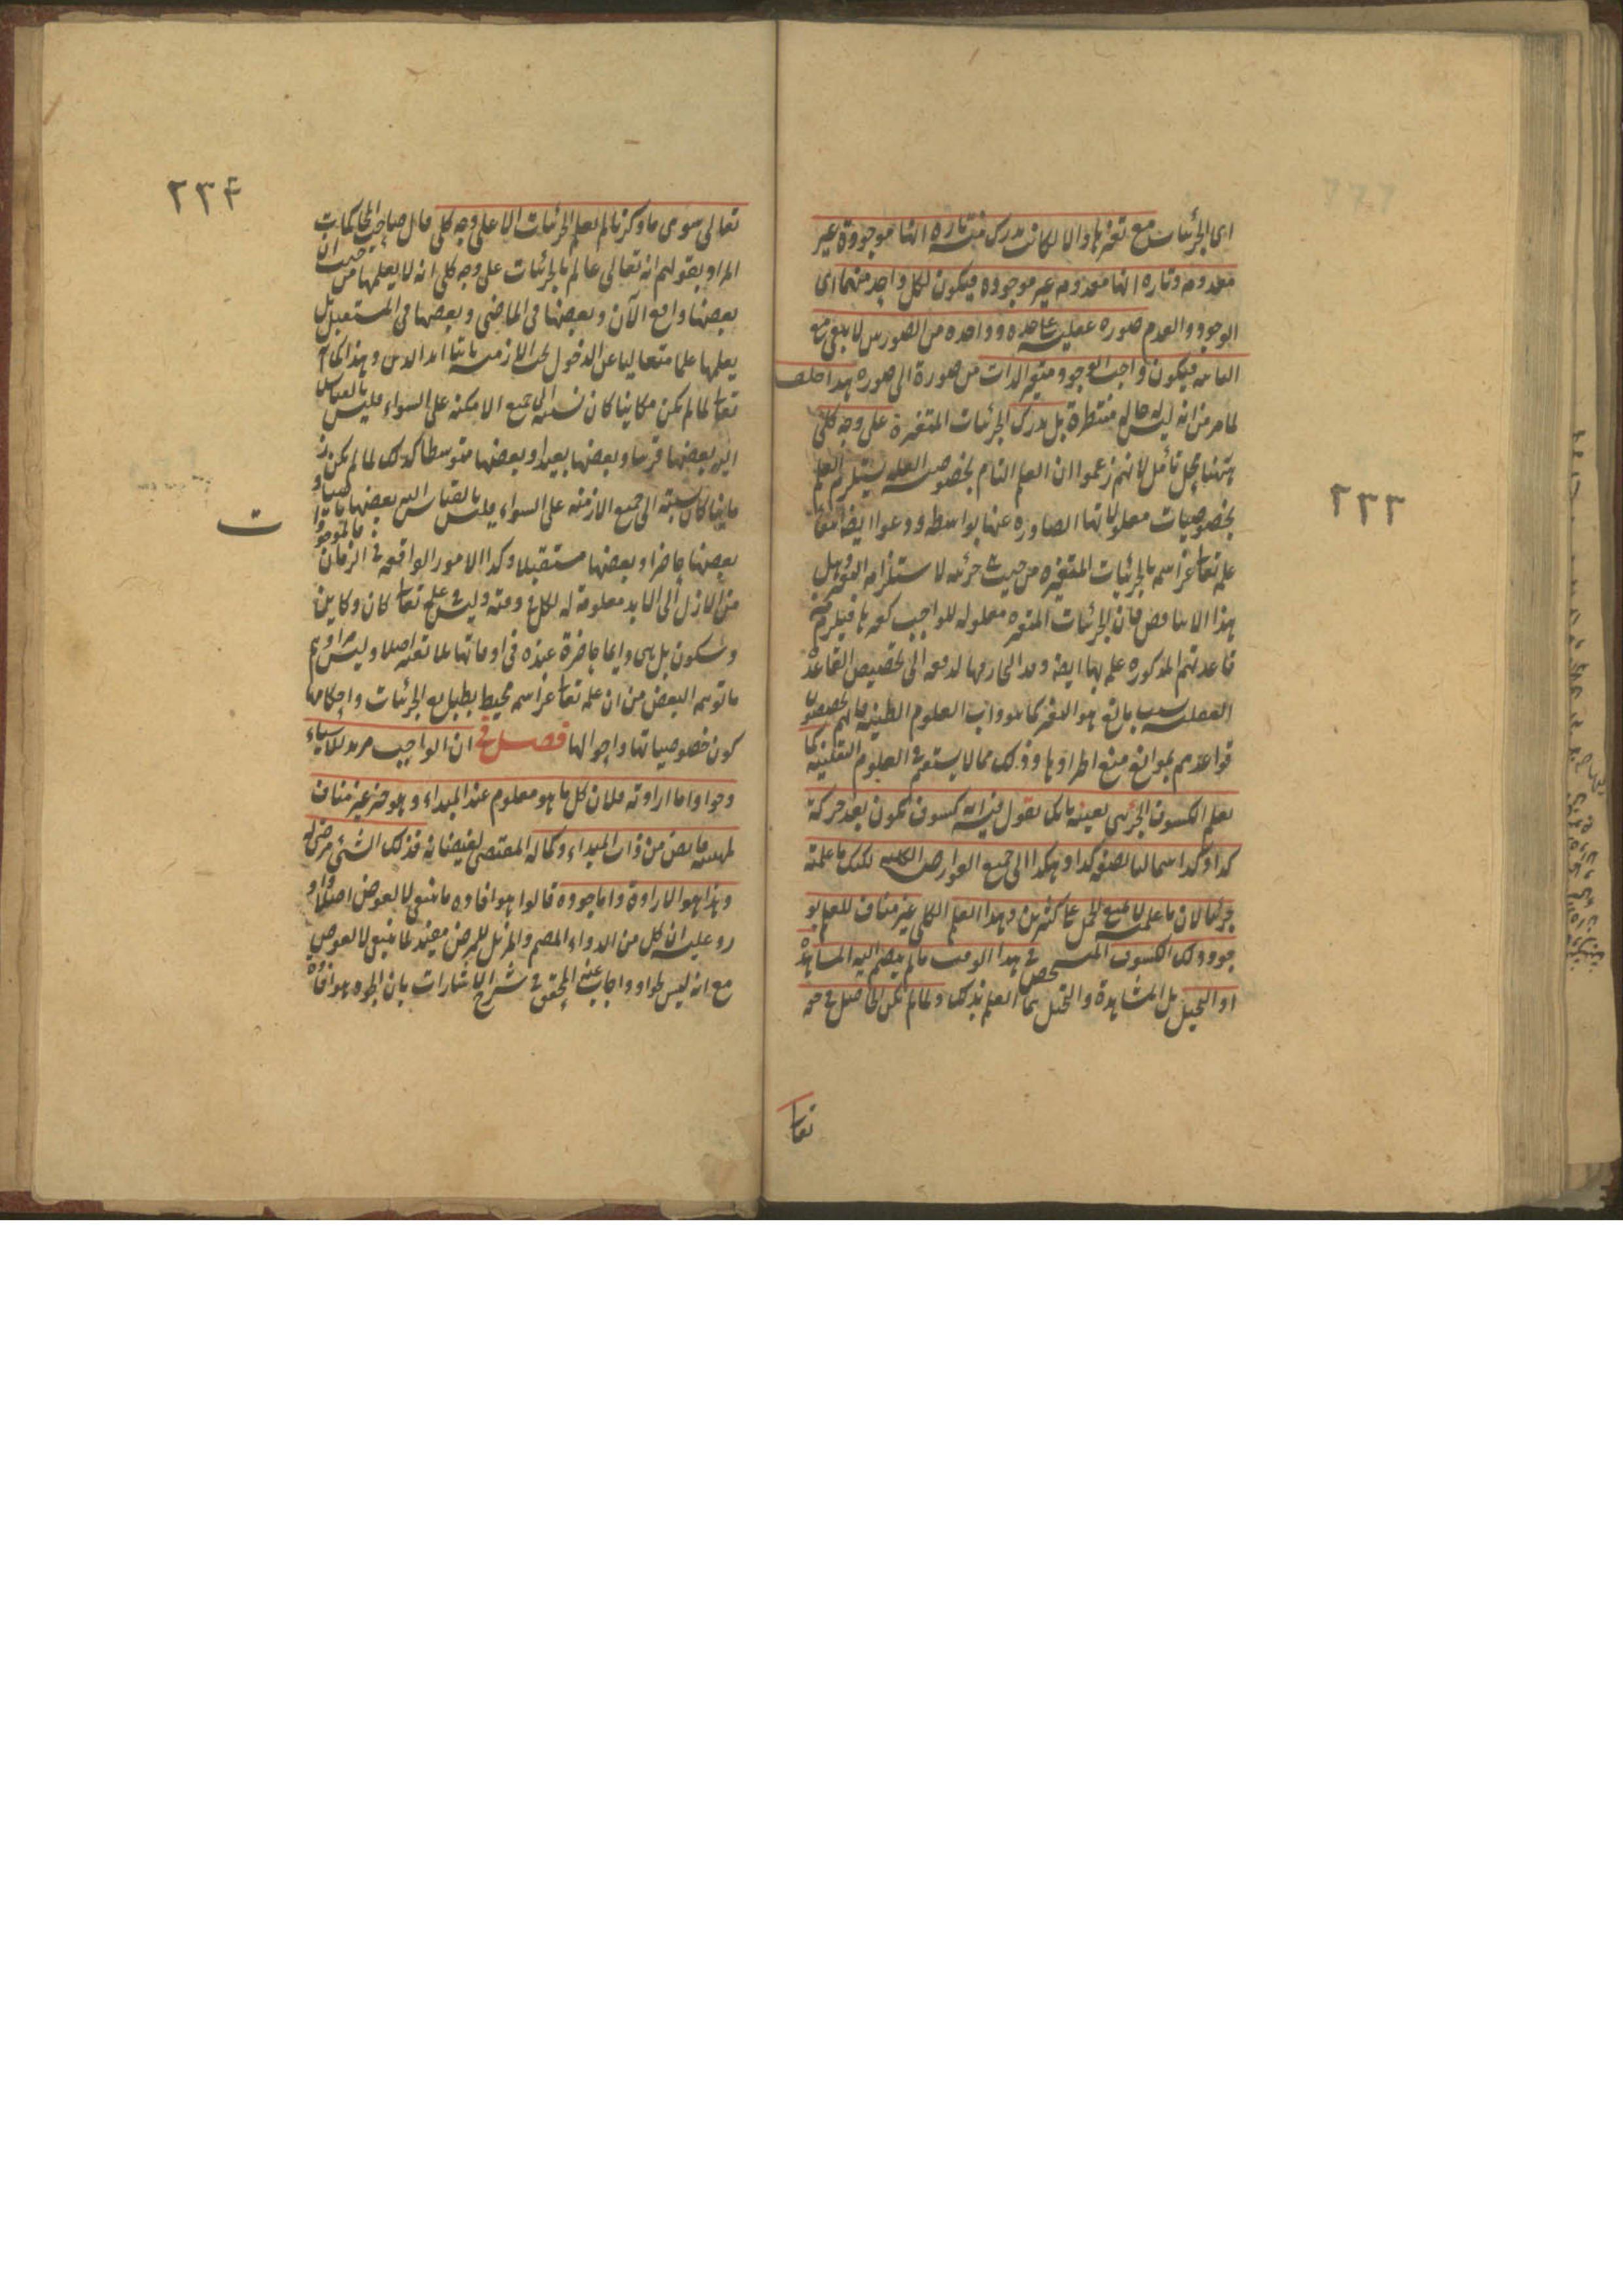 ٢٣٣
اى الجزئيات مع تغيرها والا لكان يدرك منه تارة انها موجودة غير
معدومة وتارة انها معدومة غير موجودة فيكون لكل واحد منهما اى
الوجود والعدم صورة عقلية على حدة وواحدة من الصورتين لا يبقى مع
الثانية فيكون واجب الوجود متغير الذات من صورة الى صورة هذا خلف
لما مر من انه ليس له حالة منتظرة بل يدرك الجزئيات المتغيرة على وجه كلى
ههنا محل تأمل لانهم زعموا ان العلم التام بخصوصية العلة يستلزم العلم
بخصوصيات معلولاتها الصادرة عنها بواسطة ودعوا ايضا
علمه تعالى عز اسمه بالجزئيات المتغيرة من حيث جزئية لاستلزامه التغير وهل
هذا الا تناقض فان الجزئيات المتغيرة معلولة للواجب كغيرها فيلزم من
قاعدتهم المذكورة علمه بها ايضا وقد التجاؤا فيها لدفعه الى تخصيص القاعدة
العقلية بسبب مانع هو التغير كما هو دأب العلوم الظنية فانهم يخصصون
قواعدهم بموانع منع اطرادها وذلك مما لا يستقيم فى العلوم اليقينية كما
تعلم الكسوف الجزئى بعينه بانك تقول فيه انه كسوف يكون بعد حركة
كذا وكذا شماليا بصفة كذا وهكذا الى جميع العوارض الكلية لكنك ما علمته
جزئيا لان ما علمته لا يمنع الحمل على كثيرين وهذا العلم الكلى غير مناف للعلم بو
جود ذلك الكسوف المشخص فى هذا الوقت ما لم ينضم اليه المشاهدة
او التخيل بل المشاهدة والتخيل هما العلم بذلك ولما لم يكن الحاصل فى حقه
تعالى
٢٣٤
تعالى سوى ما ذكرنا لم يعلم الجزئيات الا على وجه كلى قال صاحب المحاكمات
المراد بقولهم انه تعالى عالم بالجزئيات على وجه كلى انه لا يعلمها من حيث ان
بعضها واقع الآن وبعضها فى الماضى وبعضها فى المستقبل بل
يعلمها علما متعاليا عن الدخول تحت الازمنة ثابتا ابد الدهر وهذا كما انه
تعالى لما لم يكن مكانيا كان نسبته الى جميع الامكنة على السواء فليس بالقياس
اليه بعضها قريبا وبعضها بعيدا وبعضها متوسطا كذلك لما لم يكن ز
مانيا كان نسبته الى جميع الازمنة على السواء فليس بالقياس اليه بعضها ماضيا و
بعضها حاضرا وبعضها مستقبلا وكذا الامور الواقعة فى الزمان فالموجودا
ت
من الازل الى الابد معلومة له كل فى وقته وليس فى علمه تعالى كان وكاين
وسيكون بل هى دايما حاضرة عنده فى اوقاتها بلا تغير اصلا وليس مرادهم
ما توهمه البعض من ان علمه تعالى عز اسمه محيط بطبايع الجزئيات واحكامها
دون خصوصياتها واحوالها فصل فى ان الواجب مريد للاشياء
وجواد اما ارادته فلان كل ما هو معلوم عند المبداء وهو خير غير مناف
لمهيته فايض من ذات المبداء وكماله المقتضى لفيضانه فذلك الشئ مرضى له
وهذا هو الارادة واما جوده قالوا هو افادة ما ينبغى لا لعوض اصلا و
رد عليه ان كل من الدواء المصح والمزيل للمرض مفيد لما ينبغى لا لعوض
مع انه ليس بجواد واجاب عنه المحقق فى شرح الاشارات بان الجود هو افادة